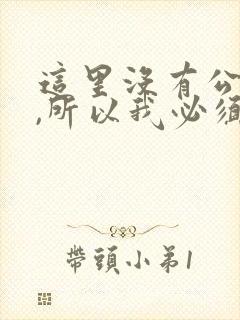 這里没有公
,所以我必須
帶頭小弟1